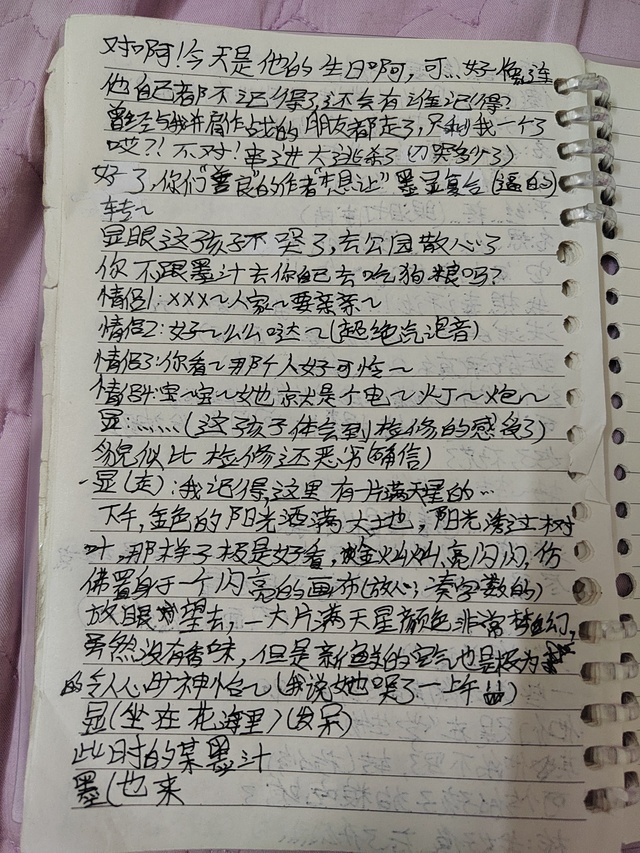 对啊!今天是他的生日啊,可…好像连
他自己都不记得了,还会有谁记得?
曾经与我并肩作战的朋友都走了,只剩我一个了
哎?!不对!串了进大逃杀了(切哭多少了)
好了,你们“善良”的作者“想让”墨显复合(逼的)
转~
显眼这孩子不哭了,去公园散心了
你不跟墨汁去你自己去吃狗粮吗?
情侣1:×××~人家~要亲亲~
情侣2:好~么么哒~(超绝气泡音)
情侣3:你看~那个人好可怜~
情侣4:宝~宝~她就是个电~灯~炮~
显:……(这孩子体会到检修的感受了)
貌似比检修还恶劣(确信)
显(走):我记得,这里有一片满天星的…
下午,金色的阳光洒满大地,阳光透过树
叶,那样子极是好看,金灿灿、亮闪闪,仿
佛置身于一个闪亮的画布(放心,凑字数的)
放眼望去,一大片满天星颜色非常梦幻,
虽然没有香味,但是新鲜的空气也是极为
的令人心旷神怡~(我说她哭了一上午)
显(坐在花海里)(发呆)
此时的某墨汁
墨(也来